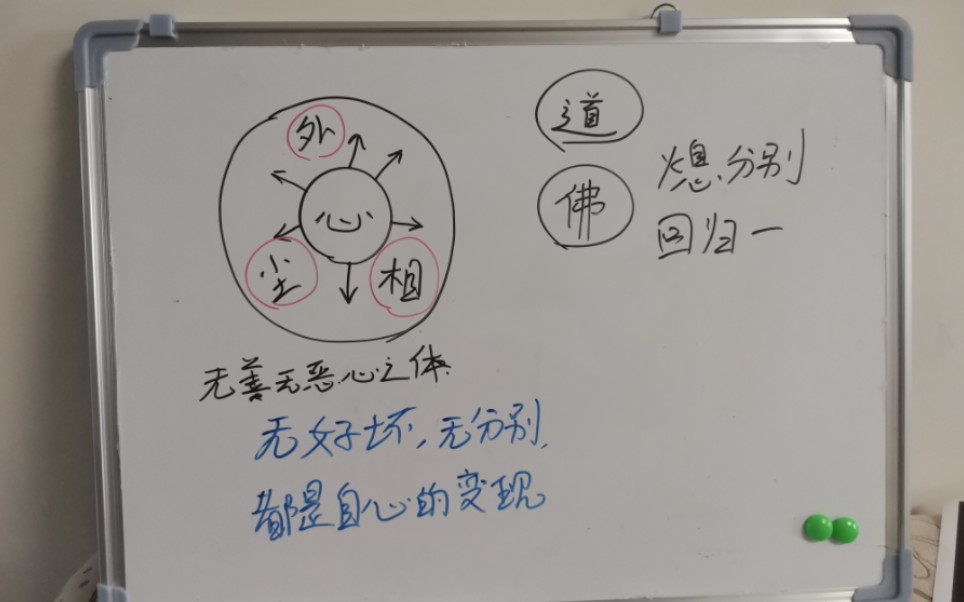 外
心
尘
相
无善无恶心之体
无好坏，无分别，
都是自心的变现
道
佛
熄分别
回归一